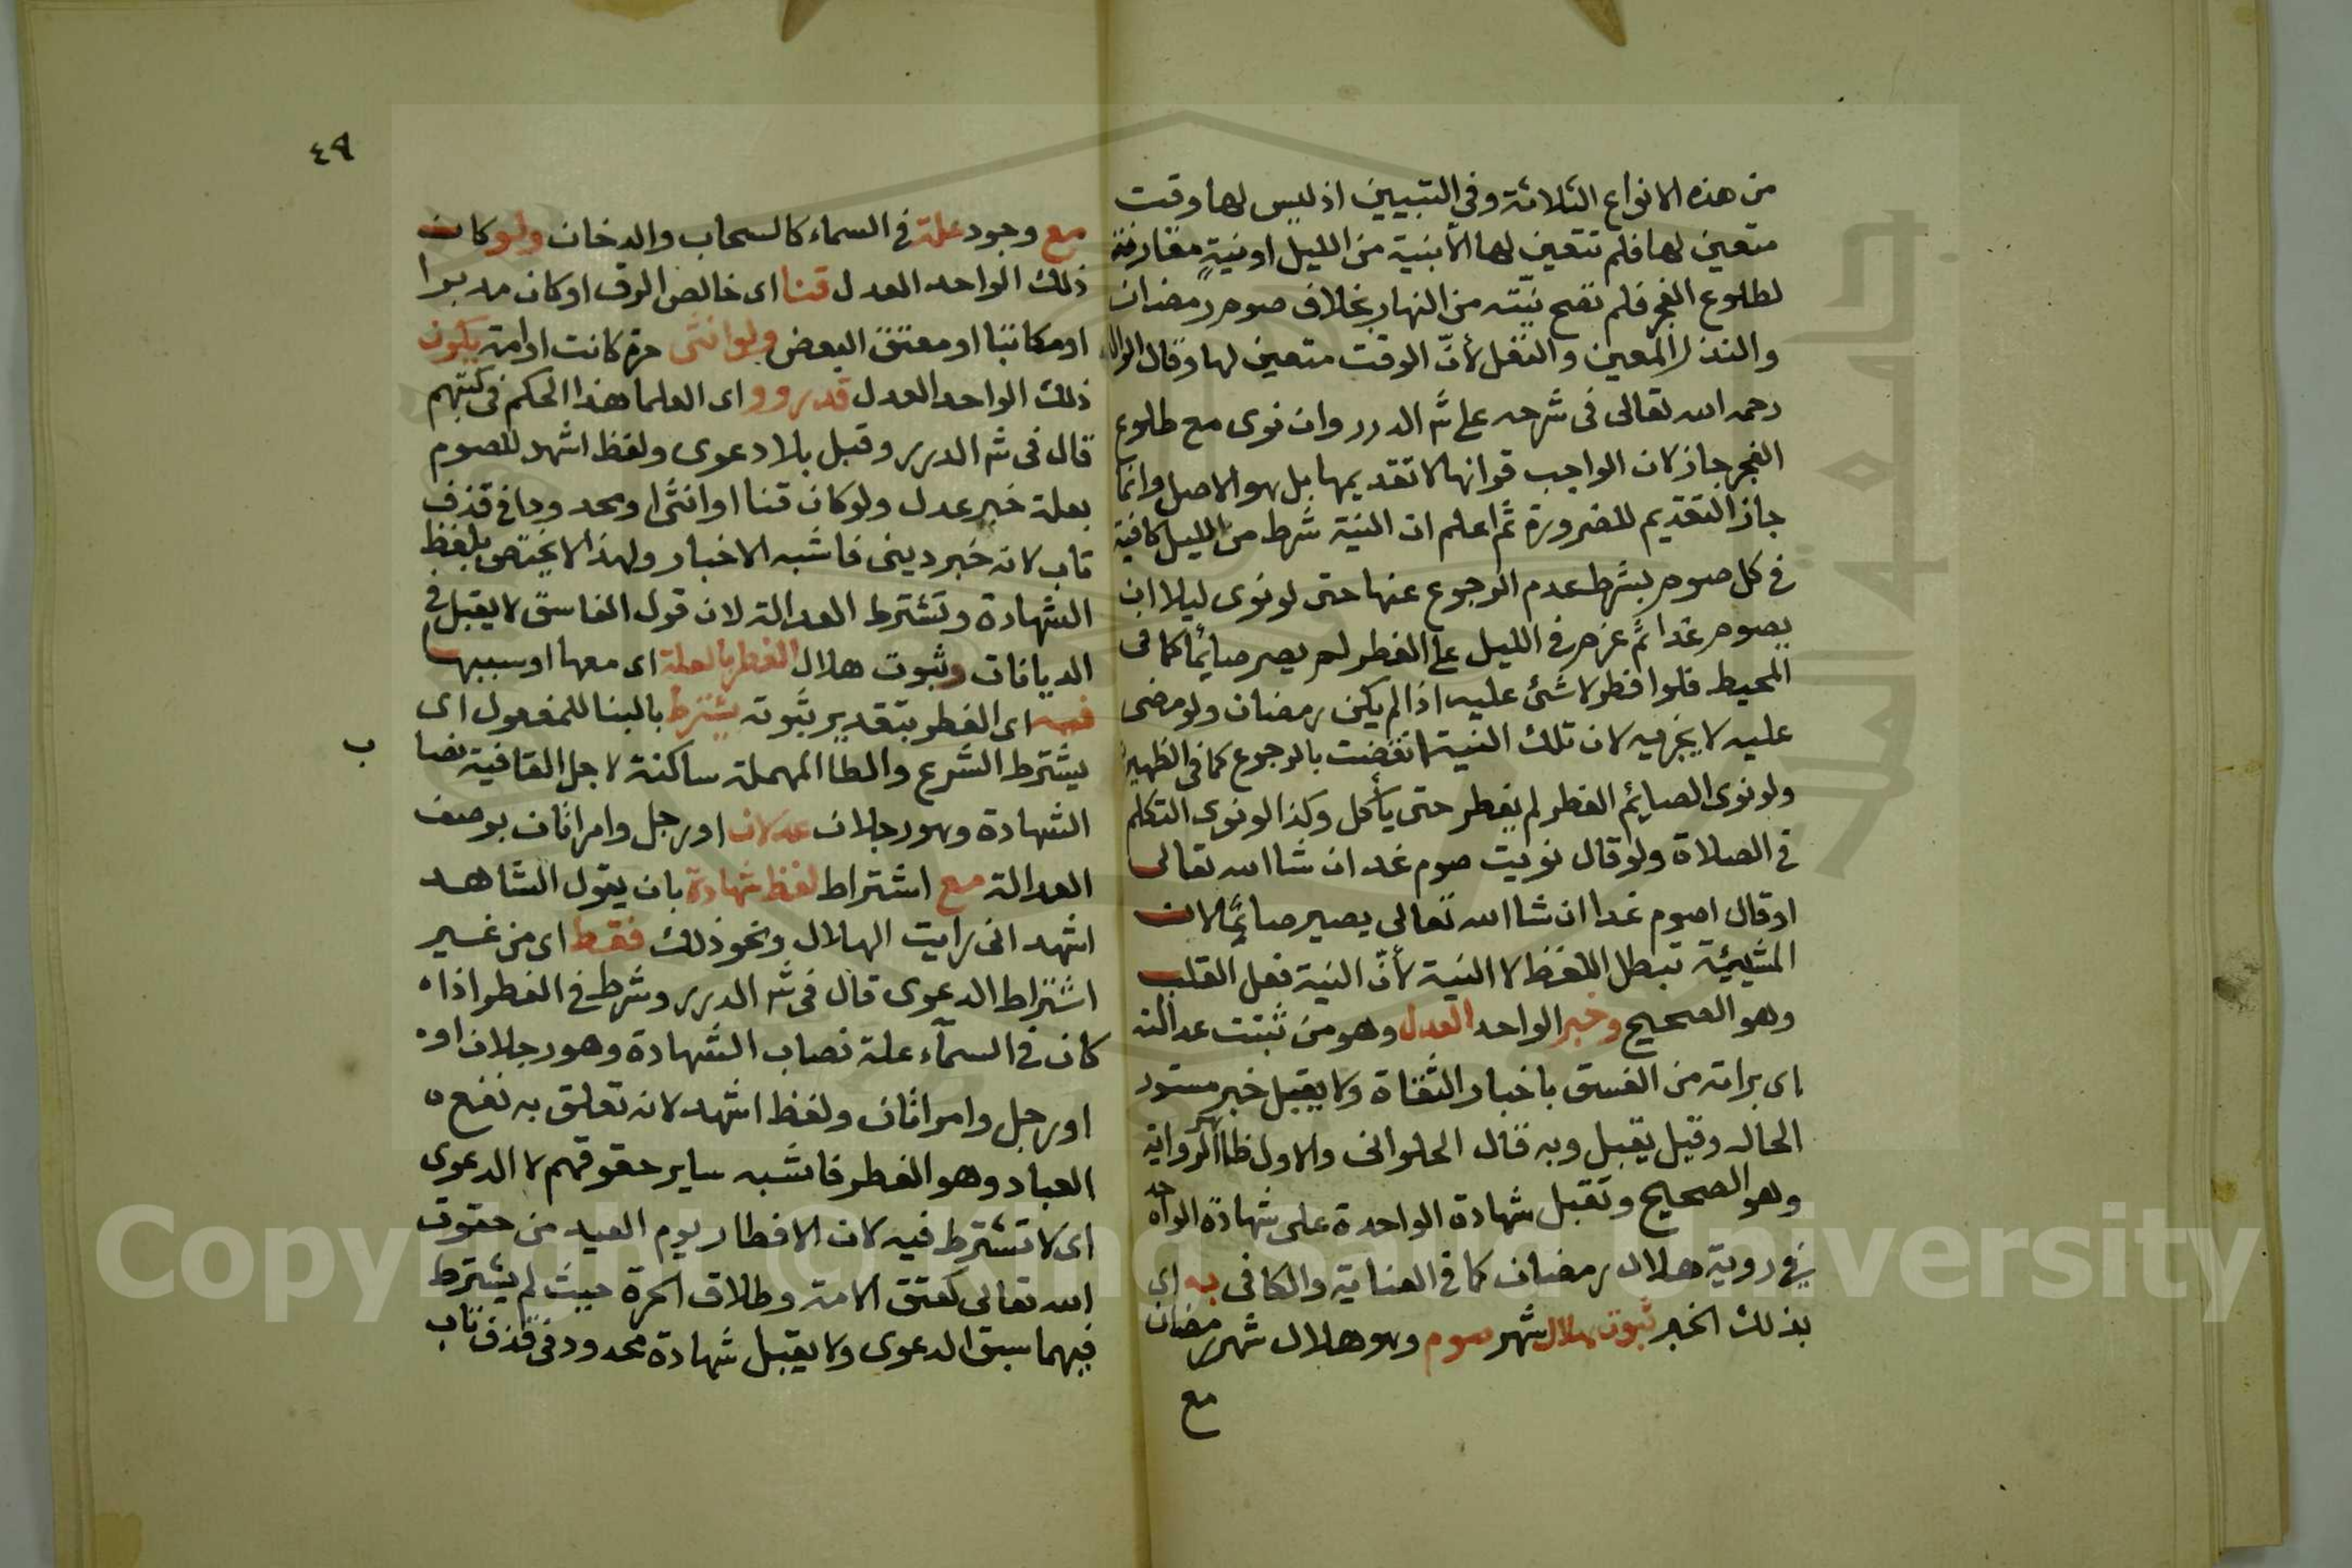 من هذه الانواع الثلاثة وفي التبيين اذ ليس لها وقت
متعين لها فلم تتعين لها الا بنية من الليل او نيةٍ مقارنة
لطلوع الفجر فلم تصح نيّته من النهار بخلاف صوم رمضان
والنذر المعين والنفل لأنّ الوقت متعين لها وقال الوالد
رحمه الله تعالى في شرحه على شر الدرر وان نوى مع طلوع
الفجر جاز لان الواجب قرانها لا تقديمها بل هو الاصل وانما
جاز التقديم للضرورة ثم اعلم ان النية شرط من الليل كافية
في كل صوم بشرط عدم الرجوع عنها حتى لو نوى ليلا ان
يصوم غدا ثم عزم في الليل على الفطر لم يصر صائما كما في
المحيط فلو افطر لا شئ عليه اذا لم يكن رمضان ولو مضى
عليه لا يجزيه لان تلك النية انتقضت بالرجوع كما في الظهيرية
ولو نوى الصايم الفطر لم يفطر حتى يأكل وكذا لو نوى التكلم
في الصلاة ولو قال نويت صوم غد ان شا الله تعالى
او قال اصوم غدا ان شا الله تعالى يصير صائمًا لان
المشيئة تبطل اللفظ لا النية لأنّ النية فعل القلب
وهو الصحيح وخبر الواحد العدل وهو من ثبتت عدالته
اى براته من الفسق باخبار الثقاة ولا يقبل خبر مستور
الحال وقيل يقبل وبه قال الحلواني والاول ظاهر الرواية
وهو الصحيح وتقبل شهادة الواحدة على شهادة الواحد
في روية هلال رمضان كما في العناية والكافي به اى
بذلك الخبر ثبوت هلال شهر صوم وهو هلال شهر رمضان
مع
٤٩
مع وجود علة في السماء كالسحاب والدخان ولو كان
ذلك الواحد العدل قنا اى خالص الرق او كان مدبرا
او مكاتبا او معتق البعض ولو انثى حرة كانت او امة يكون
ذلك الواحد العدل قد رووا اى العلما هذا الحكم في كتبهم
قال في شر الدرر وقبل بلا دعوى ولفظ اشهد للصوم
بعلة خبر عدل ولو كان قنا او انثى او محدودا في قذف
تاب لانه خبر ديني فاشبه الاخبار ولهذا لا يختص بلفظ
الشهادة وتشترط العدالة لان قول الفاسق لا يقبل في
الديانات وثبوت هلال الفطر بالعلة اى معها او سببها
فيه اى الفطر بتقدير ثبوته يشترط بالبنا للمفعول اى
يشترط الشرع والطا المهملة ساكنة لاجل القافية نصا
ب
الشهادة وهو رجلان عدلان او رجل وامراتان بوصف
العدالة مع اشتراط لفظ شهادة بان يقول الشاهد
اشهد اني رايت الهلال ونحو ذلك فقط اى من غير
اشتراط الدعوى قال في شر الدرر وشرط في الفطر اذا ه
كان في السمآء علة نصاب الشهادة وهو رجلان او ه
او رجل وامراتان ولفظ اشهد لانه تعلق به نفع ه
العباد وهو الفطر فاشبه ساير حقوقهم لا الدعوى
اى لا تشترط فيه لان الافطار يوم العيد من حقوق
الله تعالى كعتق الامة وطلاق الحرة حيث لم يشترط
فيهما سبق الدعوى ولا يقبل شهادة محدود في قذف تاب
Copyright © King Saud University
جامعة الملك سعود